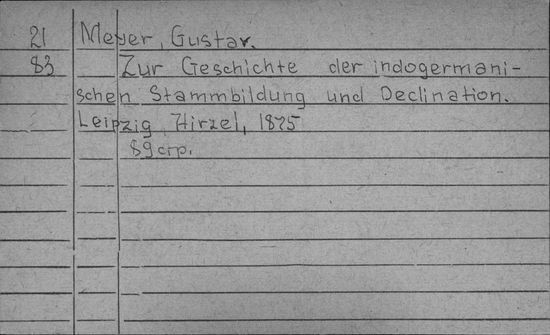 21 Meyer, Gustav.
83 Zur Geschichte der indogermani-
schen Stammbildung und Declination.
Leipzig, Hirzel, 1875
89 стр.